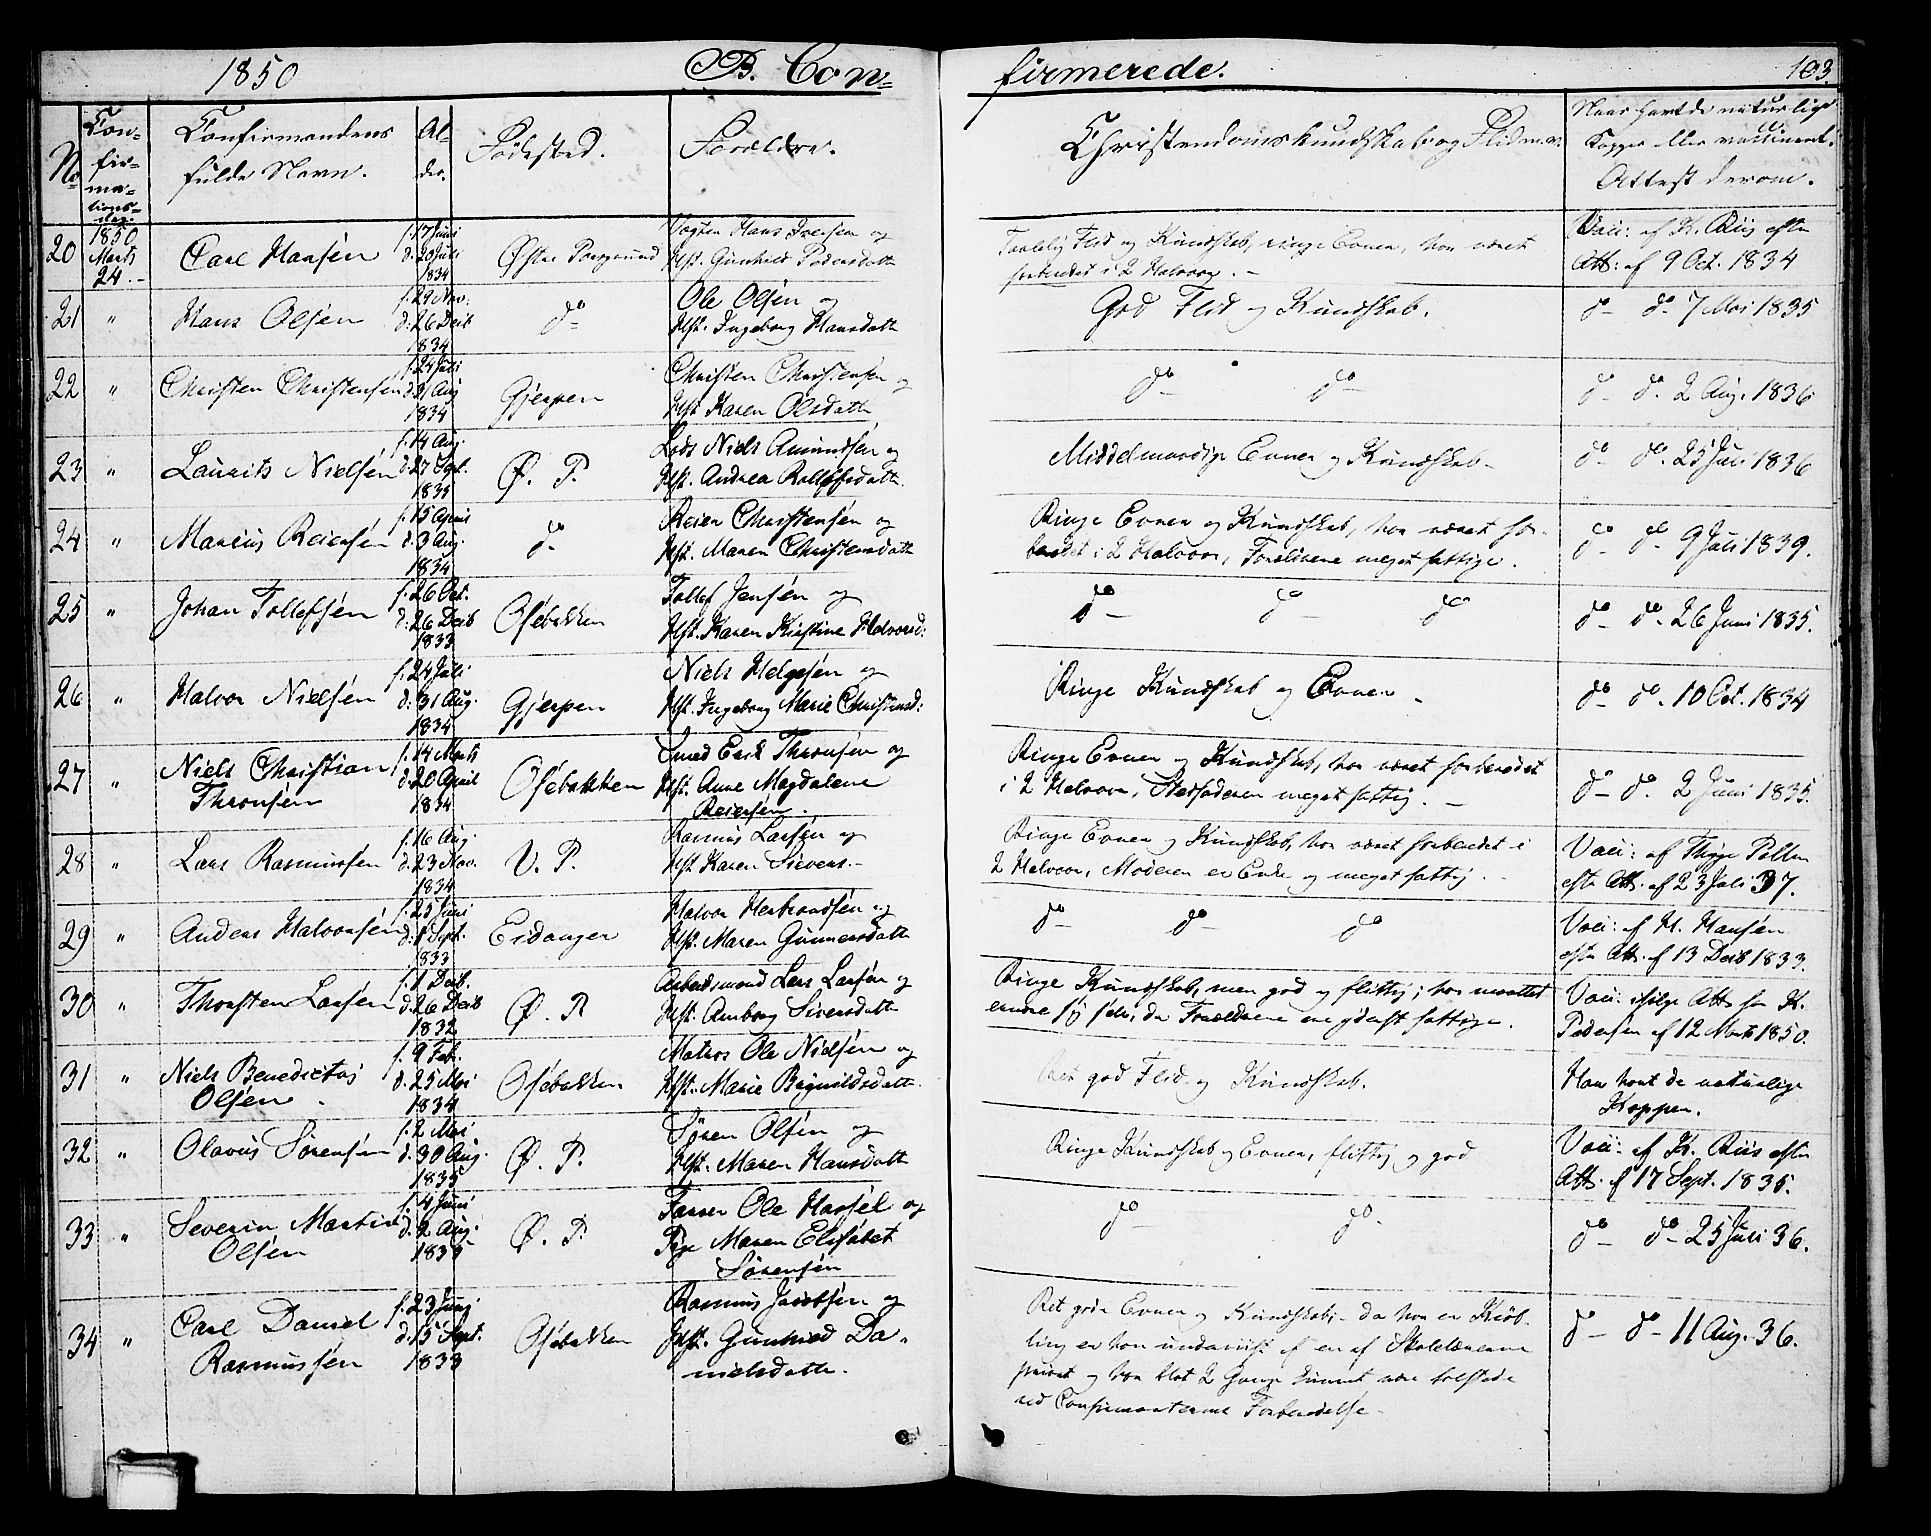 1850
B. Con=
firmerede.
103.
No
Con=
fir=
ma=
tions=
dag.
Confirmandens
fulde Navn.
Al=
der.
Fødested.
Forældre.
Christendomskundskab og Flid m.v.
Naar havt de naturlige
Kopper eller vaccineret.
Attest derom.
20
1850
Marts
24.
Carl Hansen
f. 17 Juni
d. 20 Juli
1834
Østre Porsgrund
Vogter Hans Iversen og
Hst. Gunhild Pedersdatte
Taalelig Flid og Kundskab, ringe Evner, har været
forberedet i 2 Halvaar. -
Vacc: af K. Riis efter
Att: af 9 Oct. 1834
21 "
Hans Olsen
f. 29 Nov.
d. 26 Decb
1834
do
Ole Olsen og
Hst. Ingeborg Hansdatte
God Flid og Kundskab.
do do 7 Mai 1835
22 "
Christen Christensen
f. 24 Juli
d. 31 Aug
1834
Gjerpen
Christen Christensen og
Hst. Karen Olsdatte
do do
do do 2 Aug. 1836
23 "
Laurits Nielsen
f. 14 Aug.
d. 27 Spt.
1835
Ø. P.
Lods Niels Amundsen og
Hst. Andrea Rollefsdatte
Middelmaadige Evner og Kundskab
do do 25 Juli 1836
24 "
Marcus Reiersen
f. 15 April
d. 3 Aug.
1834
do
Reier Christensen og
Hst. Maren Christensdatte
Ringe Evner og Kundskab, har været for-
beredet i 2 Halvaar, Forældrene meget fattige.
do do 9 Juli 1839.
25 "
Johan Tollefsen
f. 26 Oct.
d. 26 Decb
1833
Osebakken
Tollef Jensen og
Hst. Karen Kirstine Halvorsd:
do do do
do do 26 Juni 1835.
26 "
Halvor Nielsen
f. 24 Juli
d. 31 Aug.
1834
Gjerpen
Niels Helgesen og
Hst. Ingeborg Marie Christensd:
Ringe Kundskab og Evner
do do 10 Oct. 1834
27 "
Niels Christian
Thronsen
f. 14 Marts
d. 20 April
1834
Osebakken
Smed Erik Thronsen og
Hst. Anne Magdalene
Reiersen.
Ringe Evner og Kundskab, har været forberedet
i 2 Halvaar, Stedfaderen meget fattig.
do do 2 Juni 1835.
28 "
Lars Rasmussen
f. 16 Aug
d. 23 Nov.
1834
V. P.
Rasmus Larsen og
Hst. Karen Sivers.
Ringe Evner og Kundskab, har været forberedet i
2 Halvaar, Moderen er Enke og meget fattig.
Vacc: af Thrige
efter Att. af 23 Juli 37.
29 "
Anders Halvorsen
f. 25 Juni
d. 1 Sept.
1833
Eidanger
Halvor Herbrandsen og
Hst. Maren Gunnersdatte
do do do
Vacc: af H. Hansen
efter Att. af 13 Decb 1833.
30 "
Thorsten Larsen
f. 1 Decb.
d. 26 Decb
1832
Ø. P.
Arbeidsmand Lars Larsen og
Hst. Amborg Siversdatte
Ringe Kundskab, men god og flittig; har maattet
ernære sig selv, da Forældrene ere yderst fattige.
Vacc: ifølge Att. fra K.
Pedersen af 12 Marts 1850.
31 "
Niels Benedictus
Olsen.
f. 9 Feb.
d. 25 Mai
1834
Osebakken
Matros Ole Nielsen og
Hst. Marie Bognildsdatte.
Ret god Flid og Kundskab.
Han havt de naturlige
Kopper.
32 "
Olavus Sørensen
f. 2 Mai
d. 30 Aug.
1835
Ø. P.
Søren Olsen og
Hst. Maren Hansdatte
Ringe Kundskab og Evner, flittig og god
Vacc: af K. Riis efter
Att. af 17 Sept. 1835.
33 "
Severin Martin
Olsen
f. 4 Juni
d. 2 Aug.
1835
Ø. P.
Farver Ole Hansel og
Pige Maren Elisabet
Sørensen
do do
do do 25 Juli 36.
34 "
Carl Daniel
Rasmussen
f. 23 Juni
d. 15 Sept.
1833
Osebakken
Rasmus Jacobsen og
Hst. Gunhild Da-
nielsdatte.
Ret gode Evner og Kundskab; - da han er Krøb-
ling er han underviist af en af Skolelærerne
privat og har blot 2 Gange kunnet være tilstede
ved Confirmanternes Forberedelse.
do do 11 Aug. 36.